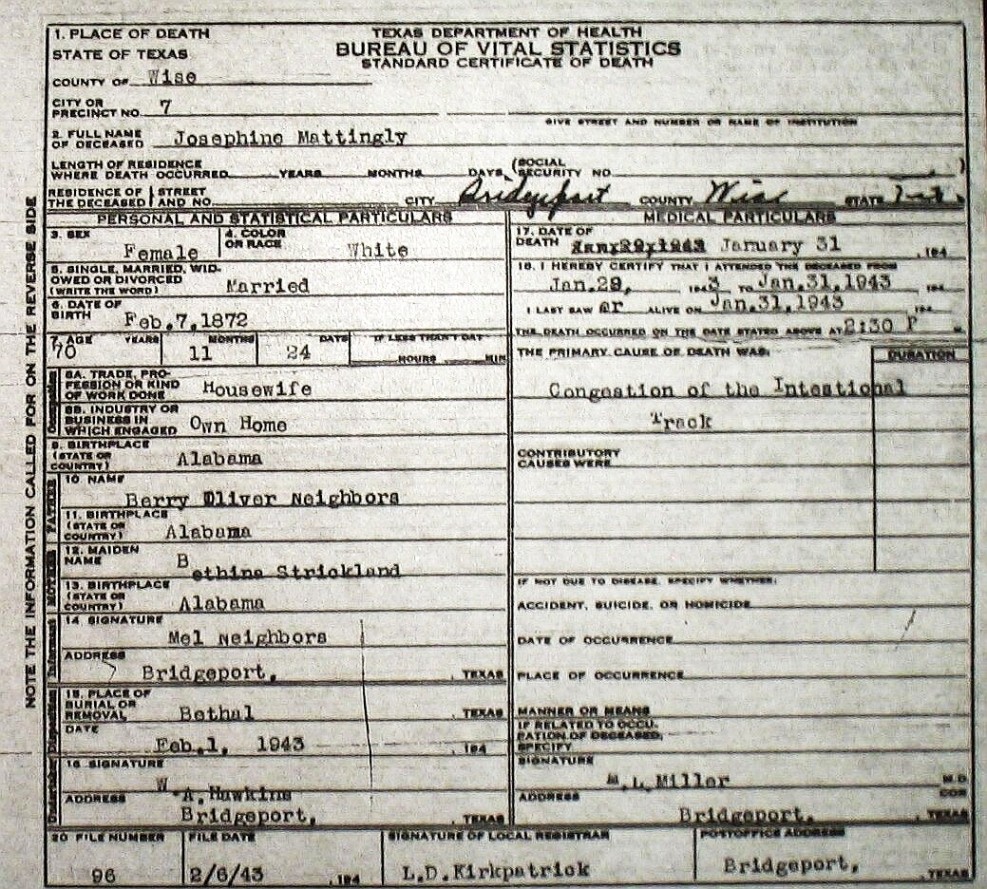 TEXAS DEPARTMENT OF HEALTH
BUREAU OF VITAL STATISTICS
STANDARD CERTIFICATE OF DEATH
1. PLACE OF DEATH
STATE OF TEXAS
COUNTY OF Wise
CITY OR PRECINCT NO. 7
GIVE STREET AND NUMBER OR NAME OF INSTITUTION
2. FULL NAME OF DECEASED Josephine Mattingly
LENGTH OF RESIDENCE WHERE DEATH OCCURRED YEARS MONTHS DAYS (SOCIAL SECURITY NO. )
RESIDENCE OF THE DECEASED STREET AND NO. CITY Bridgeport COUNTY Wise STATE
NOTE THE INFORMATION CALLED FOR ON THE REVERSE SIDE
PERSONAL AND STATISTICAL PARTICULARS
3. SEX Female
4. COLOR OR RACE White
5. SINGLE, MARRIED, WIDOWED OR DIVORCED (WRITE THE WORD) Married
6. DATE OF BIRTH Feb.7,1872
7. AGE 70 YEARS 11 MONTHS 24 DAYS IF LESS THAN 1 DAY HOURS MIN
Occupation
8A. TRADE, PROFESSION OR KIND OF WORK DONE Housewife
8B. INDUSTRY OR BUSINESS IN WHICH ENGAGED Own Home
9. BIRTHPLACE (STATE OR COUNTRY) Alabama
FATHER
10. NAME Berry Oliver Neighbors
11. BIRTHPLACE (STATE OR COUNTRY) Alabama
MOTHER
12. MAIDEN NAME Bethine Strickland
13. BIRTHPLACE (STATE OR COUNTRY) Alabama
Informant
14 SIGNATURE Mel Neighbors
ADDRESS Bridgeport, , TEXAS
Disposition
15. PLACE OF BURIAL OR REMOVAL Bethal , TEXAS
DATE Feb.1, 1943 , 194
Undertaker
16 SIGNATURE W.A.Hawkins
ADDRESS Bridgeport, , TEXAS
MEDICAL PARTICULARS
17. DATE OF DEATH Jan,29,1943 January 31 , 194
18. I HEREBY CERTIFY THAT I ATTENDED THE DECEASED FROM
Jan.29, 194 3 TO Jan.31,1943 194
I LAST SAW er ALIVE ON Jan.31,1943 194
THE DEATH OCCURRED ON THE DATE STATED ABOVE AT 2:30 P M.
THE PRIMARY CAUSE OF DEATH WAS: DURATION
Congestion of the Intestional
Track
CONTRIBUTORY CAUSES WERE
IF NOT DUE TO DISEASE, SPECIFY WHETHER:
ACCIDENT, SUICIDE, OR HOMICIDE
DATE OF OCCURRENCE
PLACE OF OCCURRENCE
MANNER OR MEANS
IF RELATED TO OCCUPATION OF DECEASED, SPECIFY
SIGNATURE M.L.Miller M.D.
ADDRESS Bridgeport, , TEXAS
20 FILE NUMBER 96
FILE DATE 2/6/43 , 194
SIGNATURE OF LOCAL REGISTRAR L.D.Kirkpatrick
POSTOFFICE ADDRESS Bridgeport, , TEXAS